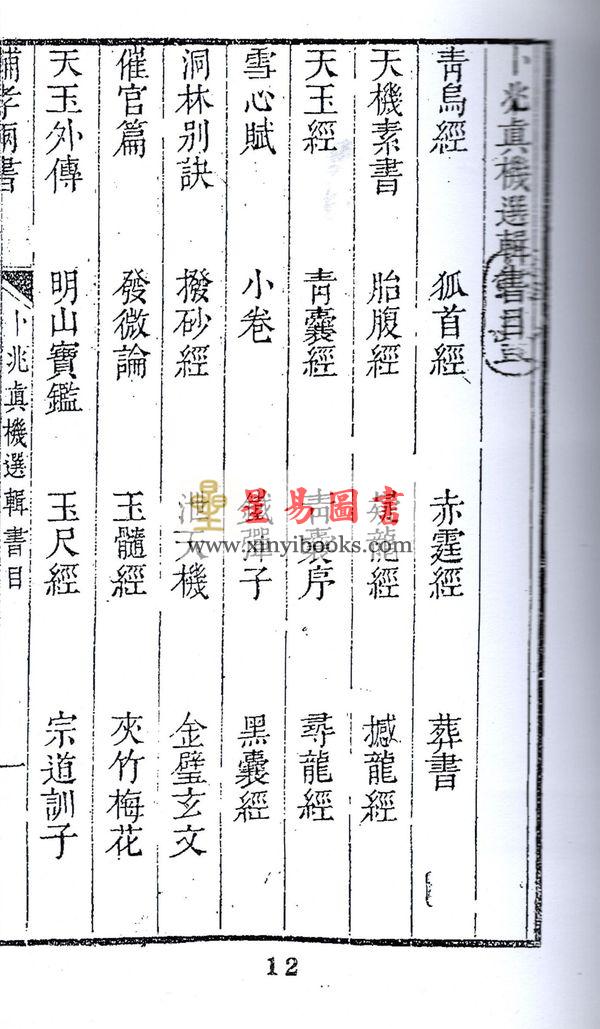 卜兆真機選輯書目
青烏經 狐首經 赤霆經 葬書
天機素書 胎腹經 疑龍經 撼龍經
天玉經 青囊經 青囊序 尋龍經
雪心賦 小卷 鐵彈子 黑囊經
洞林別訣 撥砂經 泄天機 金璧玄文
催官篇 發微論 玉髓經 夾竹梅花
天玉外傳 明山寶鑑 玉尺經 宗道訓子
卜兆真機選輯書目 一
星易圖書
www.xinyibooks.com
12